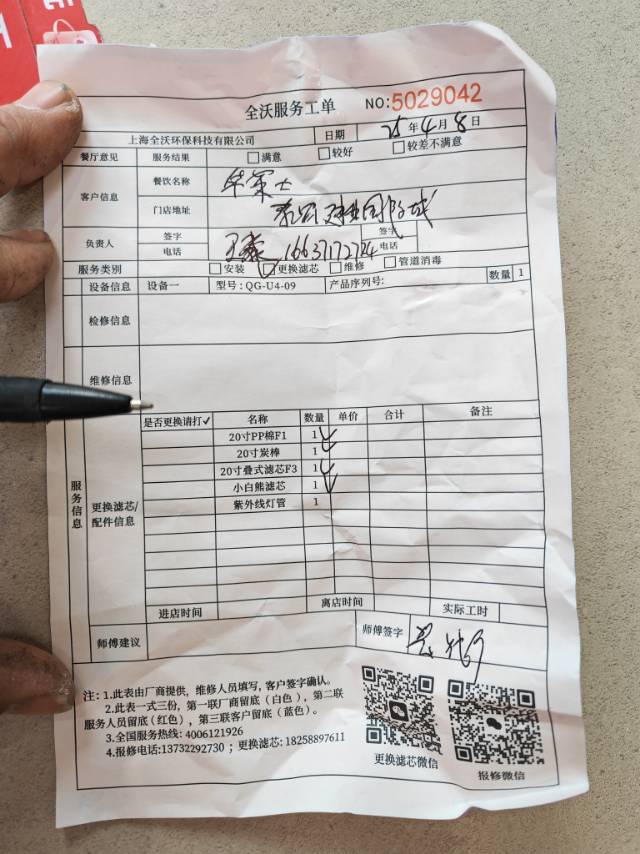 全沃服务工单 NO:5029042
上海全沃环保科技有限公司 日期 25年4月8日
餐厅意见 服务结果 满意 较好 较差不满意
客户信息 餐饮名称 华莱士
门店地址
负责人 签字 签字
电话 16637172724 电话
服务类别 安装 更换滤芯 维修 管道消毒
设备信息 设备一 型号:QG-U4-09 产品序列号: 数量 1
检修信息
维修信息
服务信息
更换滤芯/配件信息
是否更换请打✓ 名称 数量 单价 合计 备注
20寸PP棉F1 1
20寸炭棒 1
20寸叠式滤芯F3 1
小白熊滤芯 1
紫外线灯管 1
进店时间 离店时间 实际工时
师傅建议 师傅签字
注:1.此表由厂商提供,维修人员填写,客户签字确认。
2.此表一式三份,第一联厂商留底(白色),第二联
服务人员留底(红色),第三联客户留底(蓝色)。
3.全国服务热线:4006121926
4.报修电话:13732292730;更换滤芯:18258897611
更换滤芯微信 报修微信